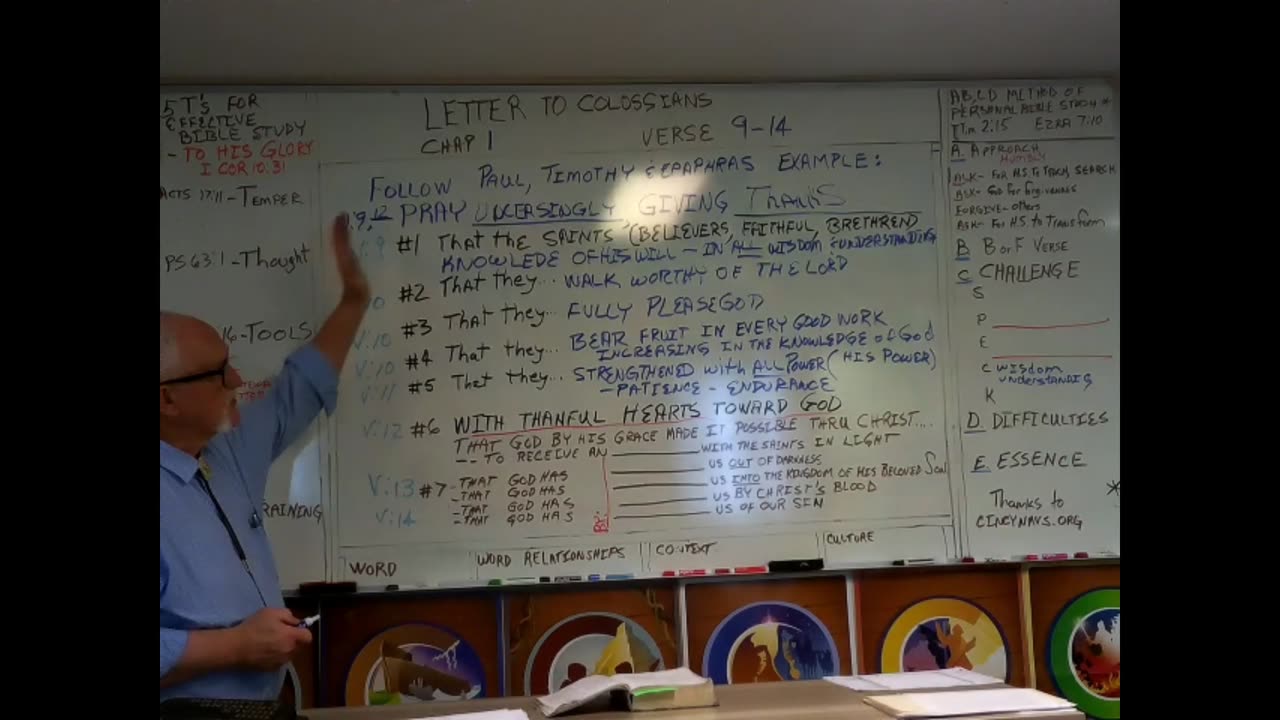 5 T'S FOR
EFFECTIVE
BIBLE STUDY
- TO HIS GLORY
I COR 10:31
ACTS 17:11 - TEMPER
PS 63:1 - Thought
16 - TOOLS
RAINING
LETTER TO COLOSSIANS
CHAP 1 VERSE 9-14
FOLLOW PAUL, TIMOTHY & EPAPHRAS EXAMPLE:
:9,12 PRAY UNCEASINGLY GIVING ThanKS
V:9 #1 That the SAINTS (BELIEVERS, FAITHFUL, BRETHREN)
KNOWLEDE OF HIS WILL - IN ALL WISDOM & UNDERSTANDING
#2 That they... WALK WORTHY OF THE LORD
V:10 #3 That they... FULLY PLEASE GOD
V:10 #4 That they... BEAR FRUIT IN EVERY GOOD WORK
INCREASING IN THE KNOWLEDGE of God
V:11 #5 That they... STRENGTHENED with ALL POWER (HIS POWER)
- PATIENCE - ENDURANCE
V:12 #6 WITH THANFUL HEARTS TOWARD GOD
THAT GOD BY HIS GRACE MADE IT POSSIBLE THRU CHRIST....
-- TO RECEIVE AN ________ WITH THE SAINTS IN LIGHT
V:13 #7 - THAT GOD HAS ________ US OUT OF DARKNESS
- THAT GOD HAS ________ US INTO THE KINGDOM OF HIS BELOVED SON
V:14 - THAT GOD HAS ________ US BY CHRIST'S BLOOD
- THAT GOD HAS ________ US OF OUR SIN
WORD WORD RELATIONSHIPS CONTEXT CULTURE
AB,CD METHOD OF
PERSONAL BIBLE STUDY
II Tim 2:15 EZRA 7:10
A. APPROACH
HUMBLY
ASK - FOR H.S. TO TEACH, SEARCH
ASK - God for forgiveness
FORGIVE - others
ASK - For H.S. to Transform
B B or F VERSE
C CHALLENGE
S
P
E
C WISDOM
UNDERSTANDIG
K
D. DIFFICULTIES
E. ESSENCE
Thanks to
CINCYNAVS.ORG